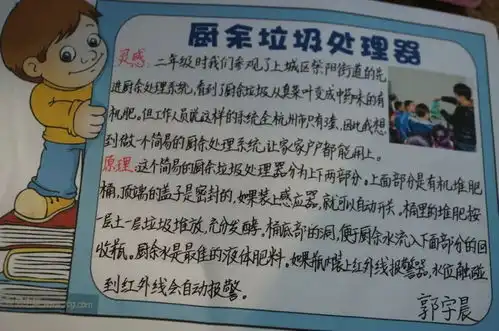 厨余垃圾处理器
灵感：二年级时我们参观了上城区紫阳街道的先
进厨余处理系统，看到了厨余垃圾从臭菜叶变成中药味的有
机肥。但工作人员说这样的系统全杭州市只有壹，因此我想
到做一个简易的厨余处理系统，让家家户户都能用上。
原理：这个简易的厨余垃圾处理器分为上下两部分。上面部分是有机堆肥
桶，顶端的盖子是密封的，如果装上感应器，就可以自动开关。桶里的堆肥按
一层土一层垃圾堆放，充分发酵。桶底部的洞，便于厨余水流入下面部分的回
收瓶。厨余水是最佳的液体肥料。如果瓶口装上红外线报警器，水位触碰
到红外线会自动报警。
郭宇晨